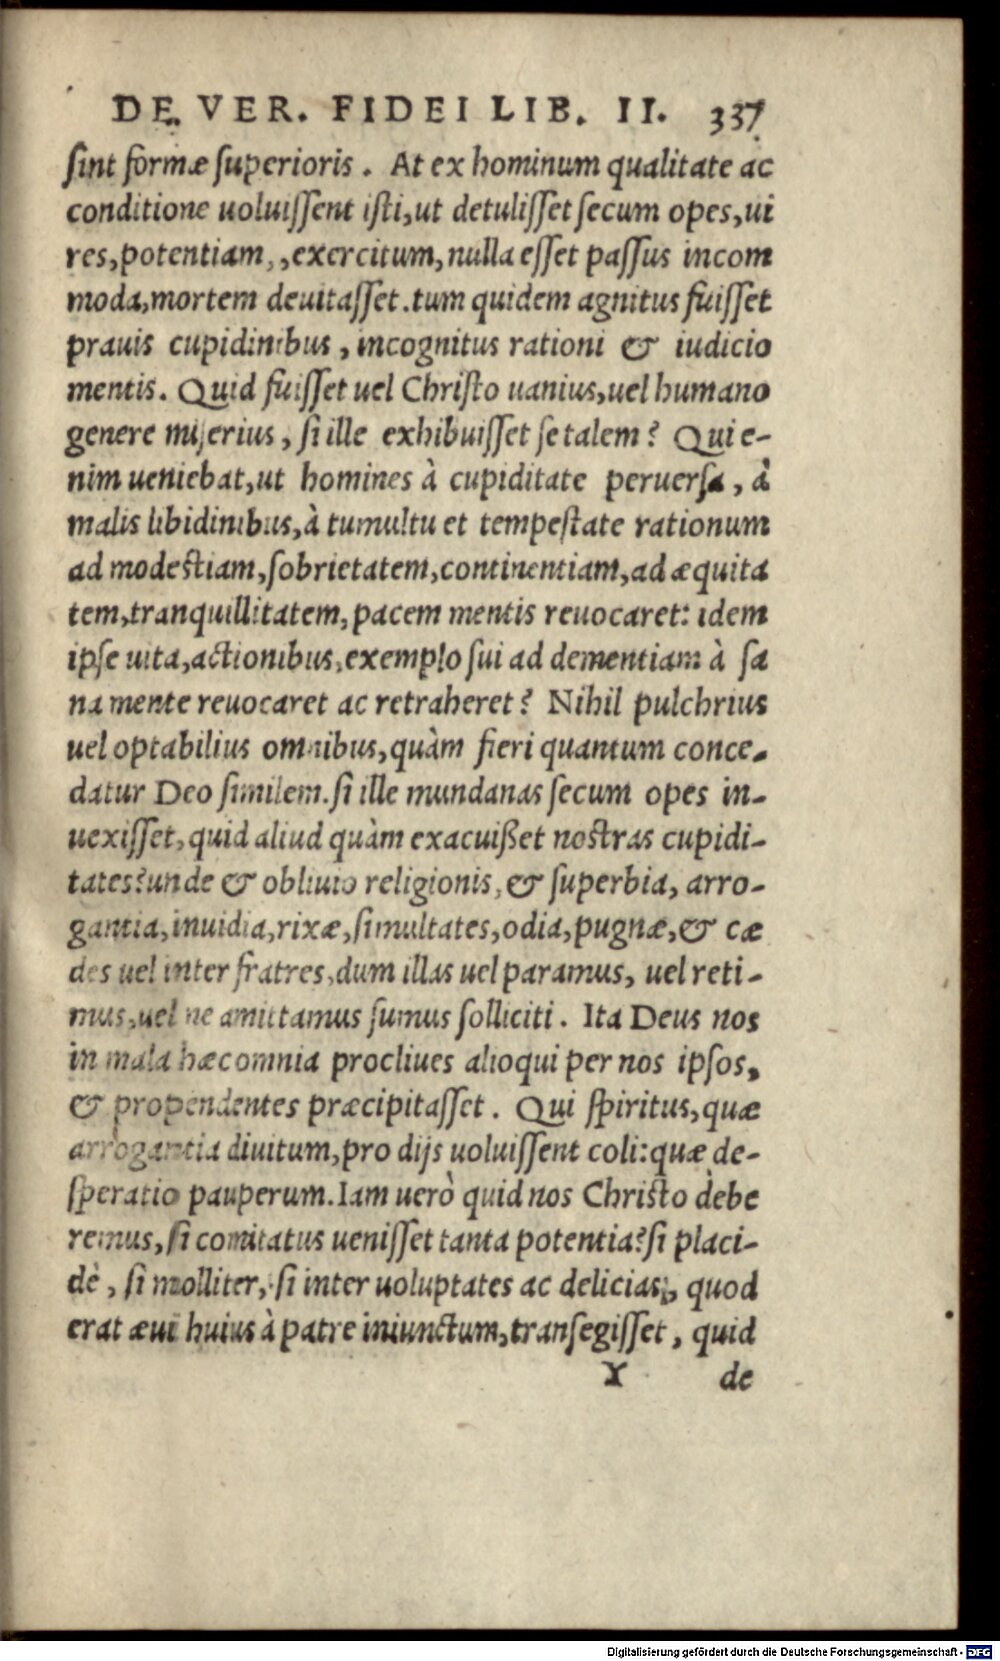 DE VER. FIDEI LIB. II. 337
ſint formæ ſuperioris. At ex hominum qualitate ac
conditione uoluiſſent iſti,ut detuliſſet ſecum opes,ui
res,potentiam,,exercitum,nulla eſſet paſſus incom
moda,mortem deuitaſſet.tum quidem agnitus fuiſſet
prauis cupidinibus, incognitus rationi & iudicio
mentis. Quid fuiſſet uel Chriſto uanius,uel humano
genere miſerius, ſi ille exhibuiſſet ſe talem? Qui e-
nim ueniebat,ut homines à cupiditate peruerſa, à
malis libidinibus,à tumultu et tempeſtate rationum
ad modeſtiam,ſobrietatem,continentiam,ad æquita
tem,tranquillitatem,pacem mentis reuocaret: idem
ipſe uita,actionibus,exemplo ſui ad dementiam à ſa
na mente reuocaret ac retraheret? Nihil pulchrius
uel optabilius omnibus,quàm fieri quantum conce-
datur Deo ſimilem.ſi ille mundanas ſecum opes in-
uexiſſet,quid aliud quàm exacuißet noſtras cupidi-
tates?unde & obliuio religionis,& ſuperbia, arro-
gantia,inuidia,rixæ,ſimultates,odia,pugnæ,& cæ
des uel inter fratres,dum illas uel paramus, uel reti-
mus,uel ne amittamus ſumus ſolliciti. Ita Deus nos
in mala hæc omnia procliues alioqui per nos ipſos,
& propendentes præcipitaſſet. Qui ſpiritus,quæ
arrogantia diuitum,pro dijs uoluiſſent coli:quæ de-
ſperatio pauperum.Iam uerò quid nos Chriſto debe
remus,ſi comitatus ueniſſet tanta potentia?ſi placi-
dè, ſi molliter, ſi inter uoluptates ac delicias, quod
erat æui huius à patre iniunctum,tranſegiſſet, quid
Y de
Digitalisierung gefördert durch die Deutsche Forschungsgemeinschaft - DFG